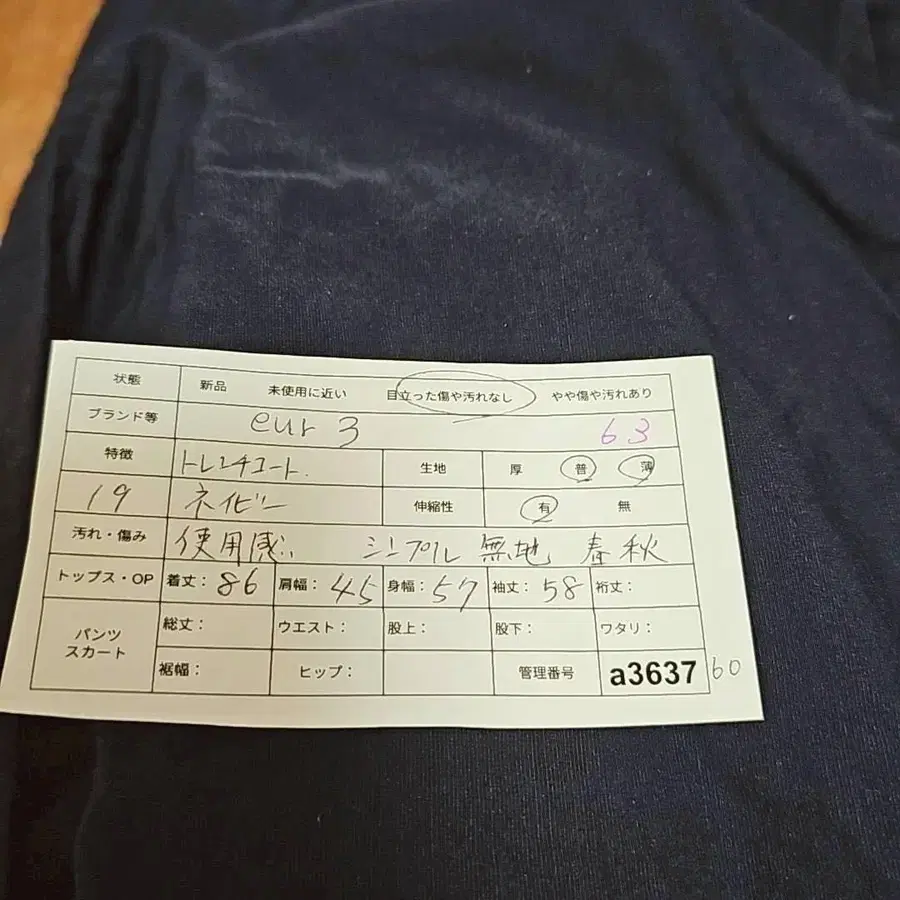 状態 新品 未使用に近い 目立った傷や汚れなし やや傷や汚れあり
ブランド等 eur3 63
特徴 トレンチコート. 生地 厚 普 薄
19 ネイビー 伸縮性 有 無
汚れ・傷み 使用感 シンプル 無地 春秋
トップス・OP 着丈:86 肩幅:45 身幅:57 袖丈:58 裄丈:
パンツ スカート 総丈: ウエスト: 股上: 股下: ワタリ:
裾幅: ヒップ: 管理番号 a3637 60